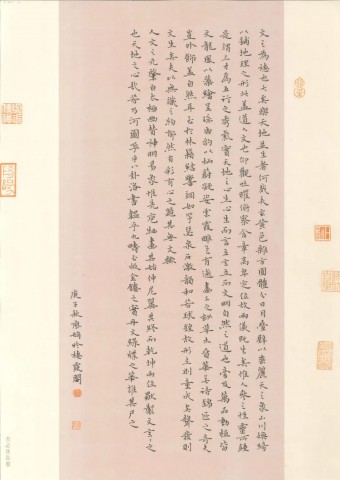 文之為德也大矣與天地並生者何哉夫玄黃色雜方圓體分日月疊璧以垂麗天之象山川煥綺
以鋪地理之形此蓋道之文也仰觀吐曜俯察含章高卑定位故兩儀既生矣惟人參之性靈所鍾
是謂三才為五行之秀氣實天地之心生心生而言立言立而文明自然之道也旁及萬品動植皆
文龍鳳以藻繪呈瑞虎豹以炳蔚凝姿雲霞雕色有逾畫工之妙草木賁華無待錦匠之奇夫
豈外飾蓋自然耳至於林籟結響調如竽瑟泉石激韻和若球鍠故形立則章成矣聲發則
文生矣夫以無識之物郁然有彩有心之器其無文歟
人文之元肇自太極幽贊神明易象惟先庖犧畫其始仲尼翼其終而乾坤兩位獨制文言言之文
也天地之心哉若乃河圖孕乎八卦洛書韞乎九疇玉版金鏤之實丹文綠牒之華誰其尸之
庚子秋於棲霞閣